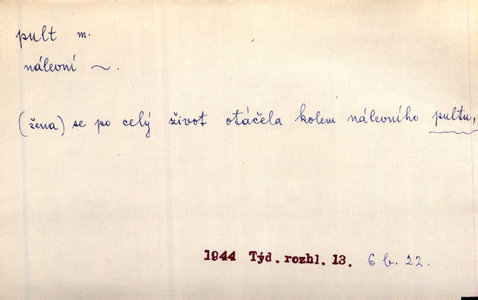 pult m.
nálevní ~.
(žena) se po celý život otáčela kolem nálevního pultu,
1944 Týd. rozhl. 13. 6 b. 22.